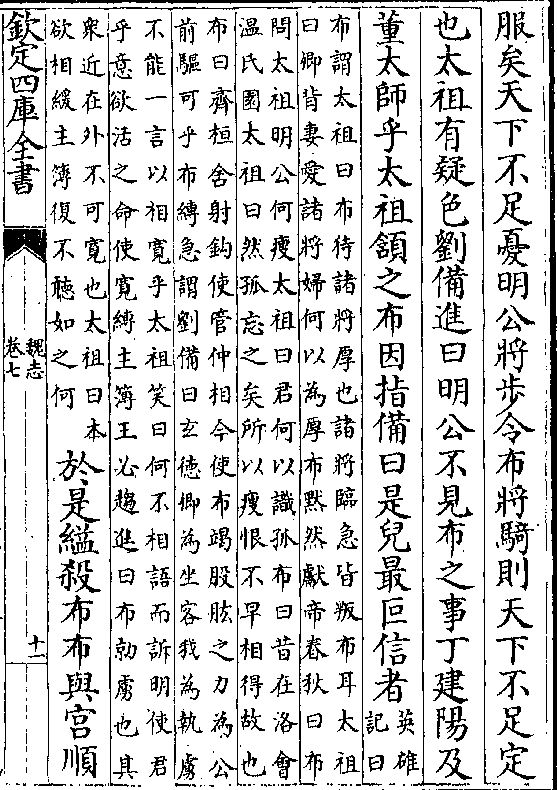 服矣天下不足憂明公將步令布將騎則天下不足定
也太祖有疑色劉備進曰明公不見布之事丁建陽及
董太師乎太祖頷之布因指備曰是兒最叵信者
英雄
記曰
布謂太祖曰布待諸將厚也諸將臨急皆叛布耳太祖
曰卿背妻愛諸將婦何以為厚布黙然獻帝春秋曰布
問太祖明公何瘦太祖曰君何以識孤布曰昔在洛會
温氏園太祖曰然孤忘之矣所以瘦恨不早相得故也
布曰齊桓舍射鈎使管仲相今使布竭股肱之力為公
前驅可乎布縛急謂劉備曰玄德卿為坐客我為執虜
不能一言以相寛乎太祖笑曰何不相語而訴明使君
乎意欲活之命使寛縛主簿王必趨進曰布勍虜也其
衆近在外不可寛也太祖曰本
欲相緩主簿復不聴如之何
於是縊殺布布與宫順
欽定四庫全書
魏志
卷七
十二